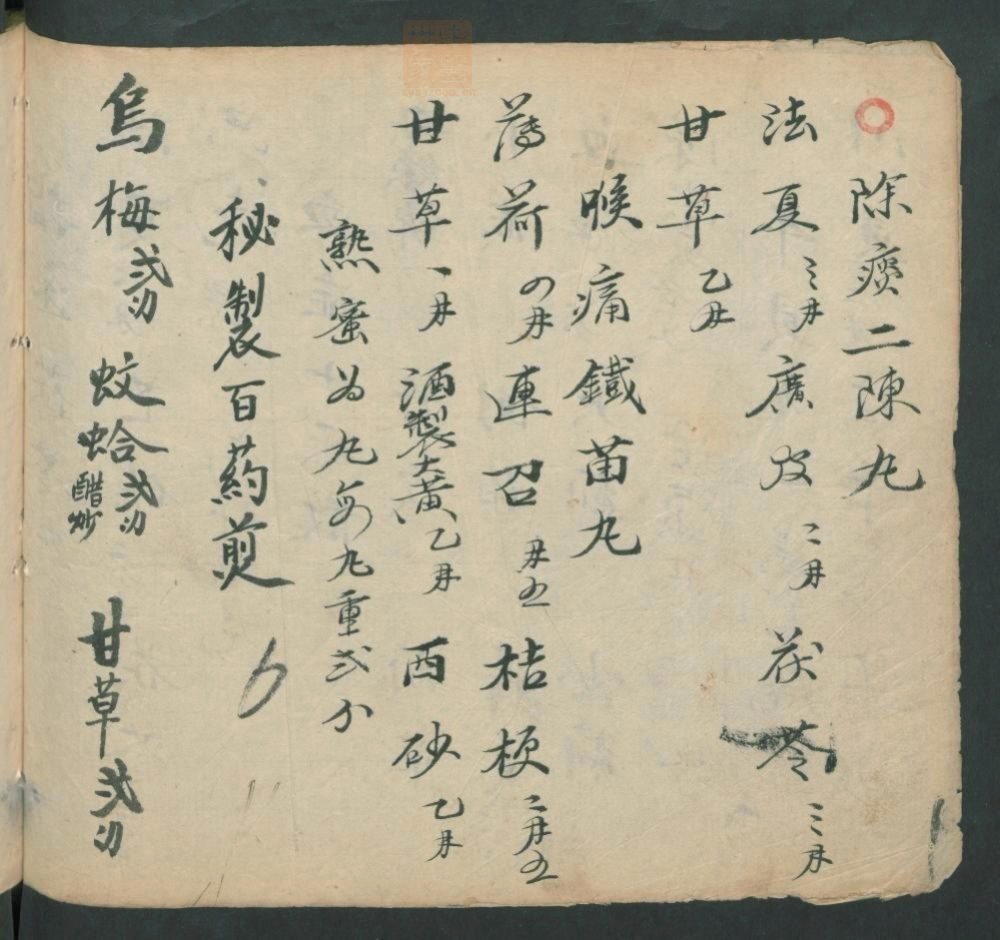 除痰二陳丸
法夏三两 廣皮二两 茯苓三两
甘草乙两
喉痛鐵苗丸
薄荷四两 連召两五 桔梗二两五
甘草一两 酒製大黃乙两 西砂乙两
熟蜜为丸每九重弍分
秘製百药煎
烏梅弍刄 蚊蛤弍刄醋炒 甘草弍刄